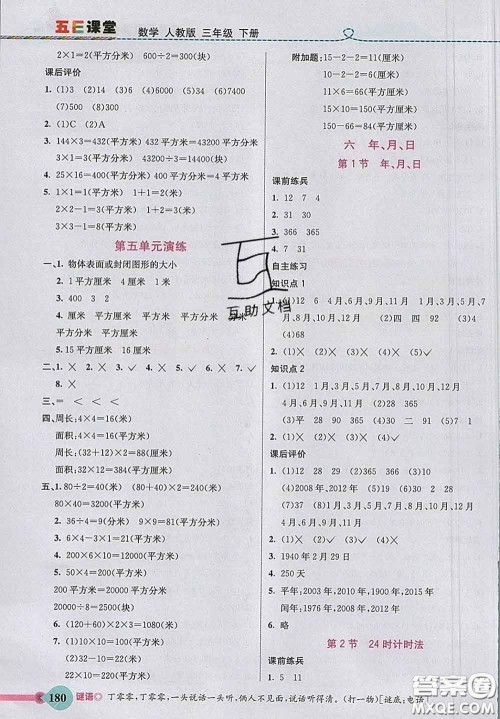 五E课堂
数学 人教版 三年级 下册
2×1=2(平方分米) 600÷2=300(块)
课后评价
1. (1)13 (2)14 (3)6 (4)34 (5)7400
(6)7 500
2. (1)C (2)A
3. 144×3=432(平方分米) 432 平方分米=43200 平方厘米
4. 20×25=500(平方厘米)
5. 1×1=1(平方米) 1+1=2(平方米)
2×1=2(平方米) 1+2=3(平方米)
3×1=3(平方米)
第五单元演练
一、1. 物体表面或封闭图形的大小
2. 1 平方厘米 1 平方分米 1 平方米
3. 400 3 2
4. 厘米 平方厘米 平方厘米 平方米
平方厘米 平方分米 平方米
5. 15 平方厘米 16 厘米
二、1. × 2. × 3. × 4. × 5. × 6. × 7. ×
8. ×
三、= < < <
四、周长:4×4=16(米)
面积:4×4=16(平方米)
周长:(32+12)×2=88(厘米)
面积:32×12=384(平方厘米)
五、1. 80÷2=40(米) (80+40)×2=240(米)
80×40=3200(平方米)
2. 36÷4=9(厘米) 9×9=81(平方厘米)
3. 6×2=12(米) 6×12=72(平方米)
4. 200×6×10=12000(平方米)
5. 60÷20=3(米) 20×3=60(平方米)
6. 50×24=1200(平方米)
1200÷2=600(平方米)
7. (1)22×10=220(平方米)
(2)22+10+10=42(米)
附加题: 15-2-2=11(厘米)
10-2-2=6(厘米)
11×6=66(平方厘米)
15×10=150(平方厘米)
150-66=84(平方厘米)
六 年、月、日
第 1 节 年、月、日
课前练兵
1. 12 7 4
2. 31 30
3. 366 365
4. 7 31
自主练习
知识点 1
1. (1)12 6 4月、6月、9月、11月 31 1月、3月、5
月、7月、8月、10月、12月 (2)四 四 92 (3)一
(4)8
2. (1)× (2)× (3)× (4)× (5)✓
知识点 2
1. (1)12 1月、3月、5月、7月、8月、10月、12月 4
月、6月、9月、11月 (2)12 365 366 28 29
(3)平 28 365 (4)30 二 91 (5)7 4
2. (1)× (2)✓ (3)× (4)✓
课后评价
1. (1)12 28 365 29 366 (2)365 (3)18
(4)2008年,2012年 (5)9月,10月
2. (1)✓ (2)✓ (3)× (4)✓
3. 1940 年 2 月 29 日
4. 250 天
5. 平年:2003 年,2010 年,1900 年,2002 年,2015 年
闰年:1976 年,2008 年,2012 年
6. 略
第 2 节 24 时计时法
互助文档
180
谜语
丁零零,丁零零,一头说话一头听,俩人不见面,说话听得清。(打一物)[谜底:电话]
答案圈
MXQE.COM